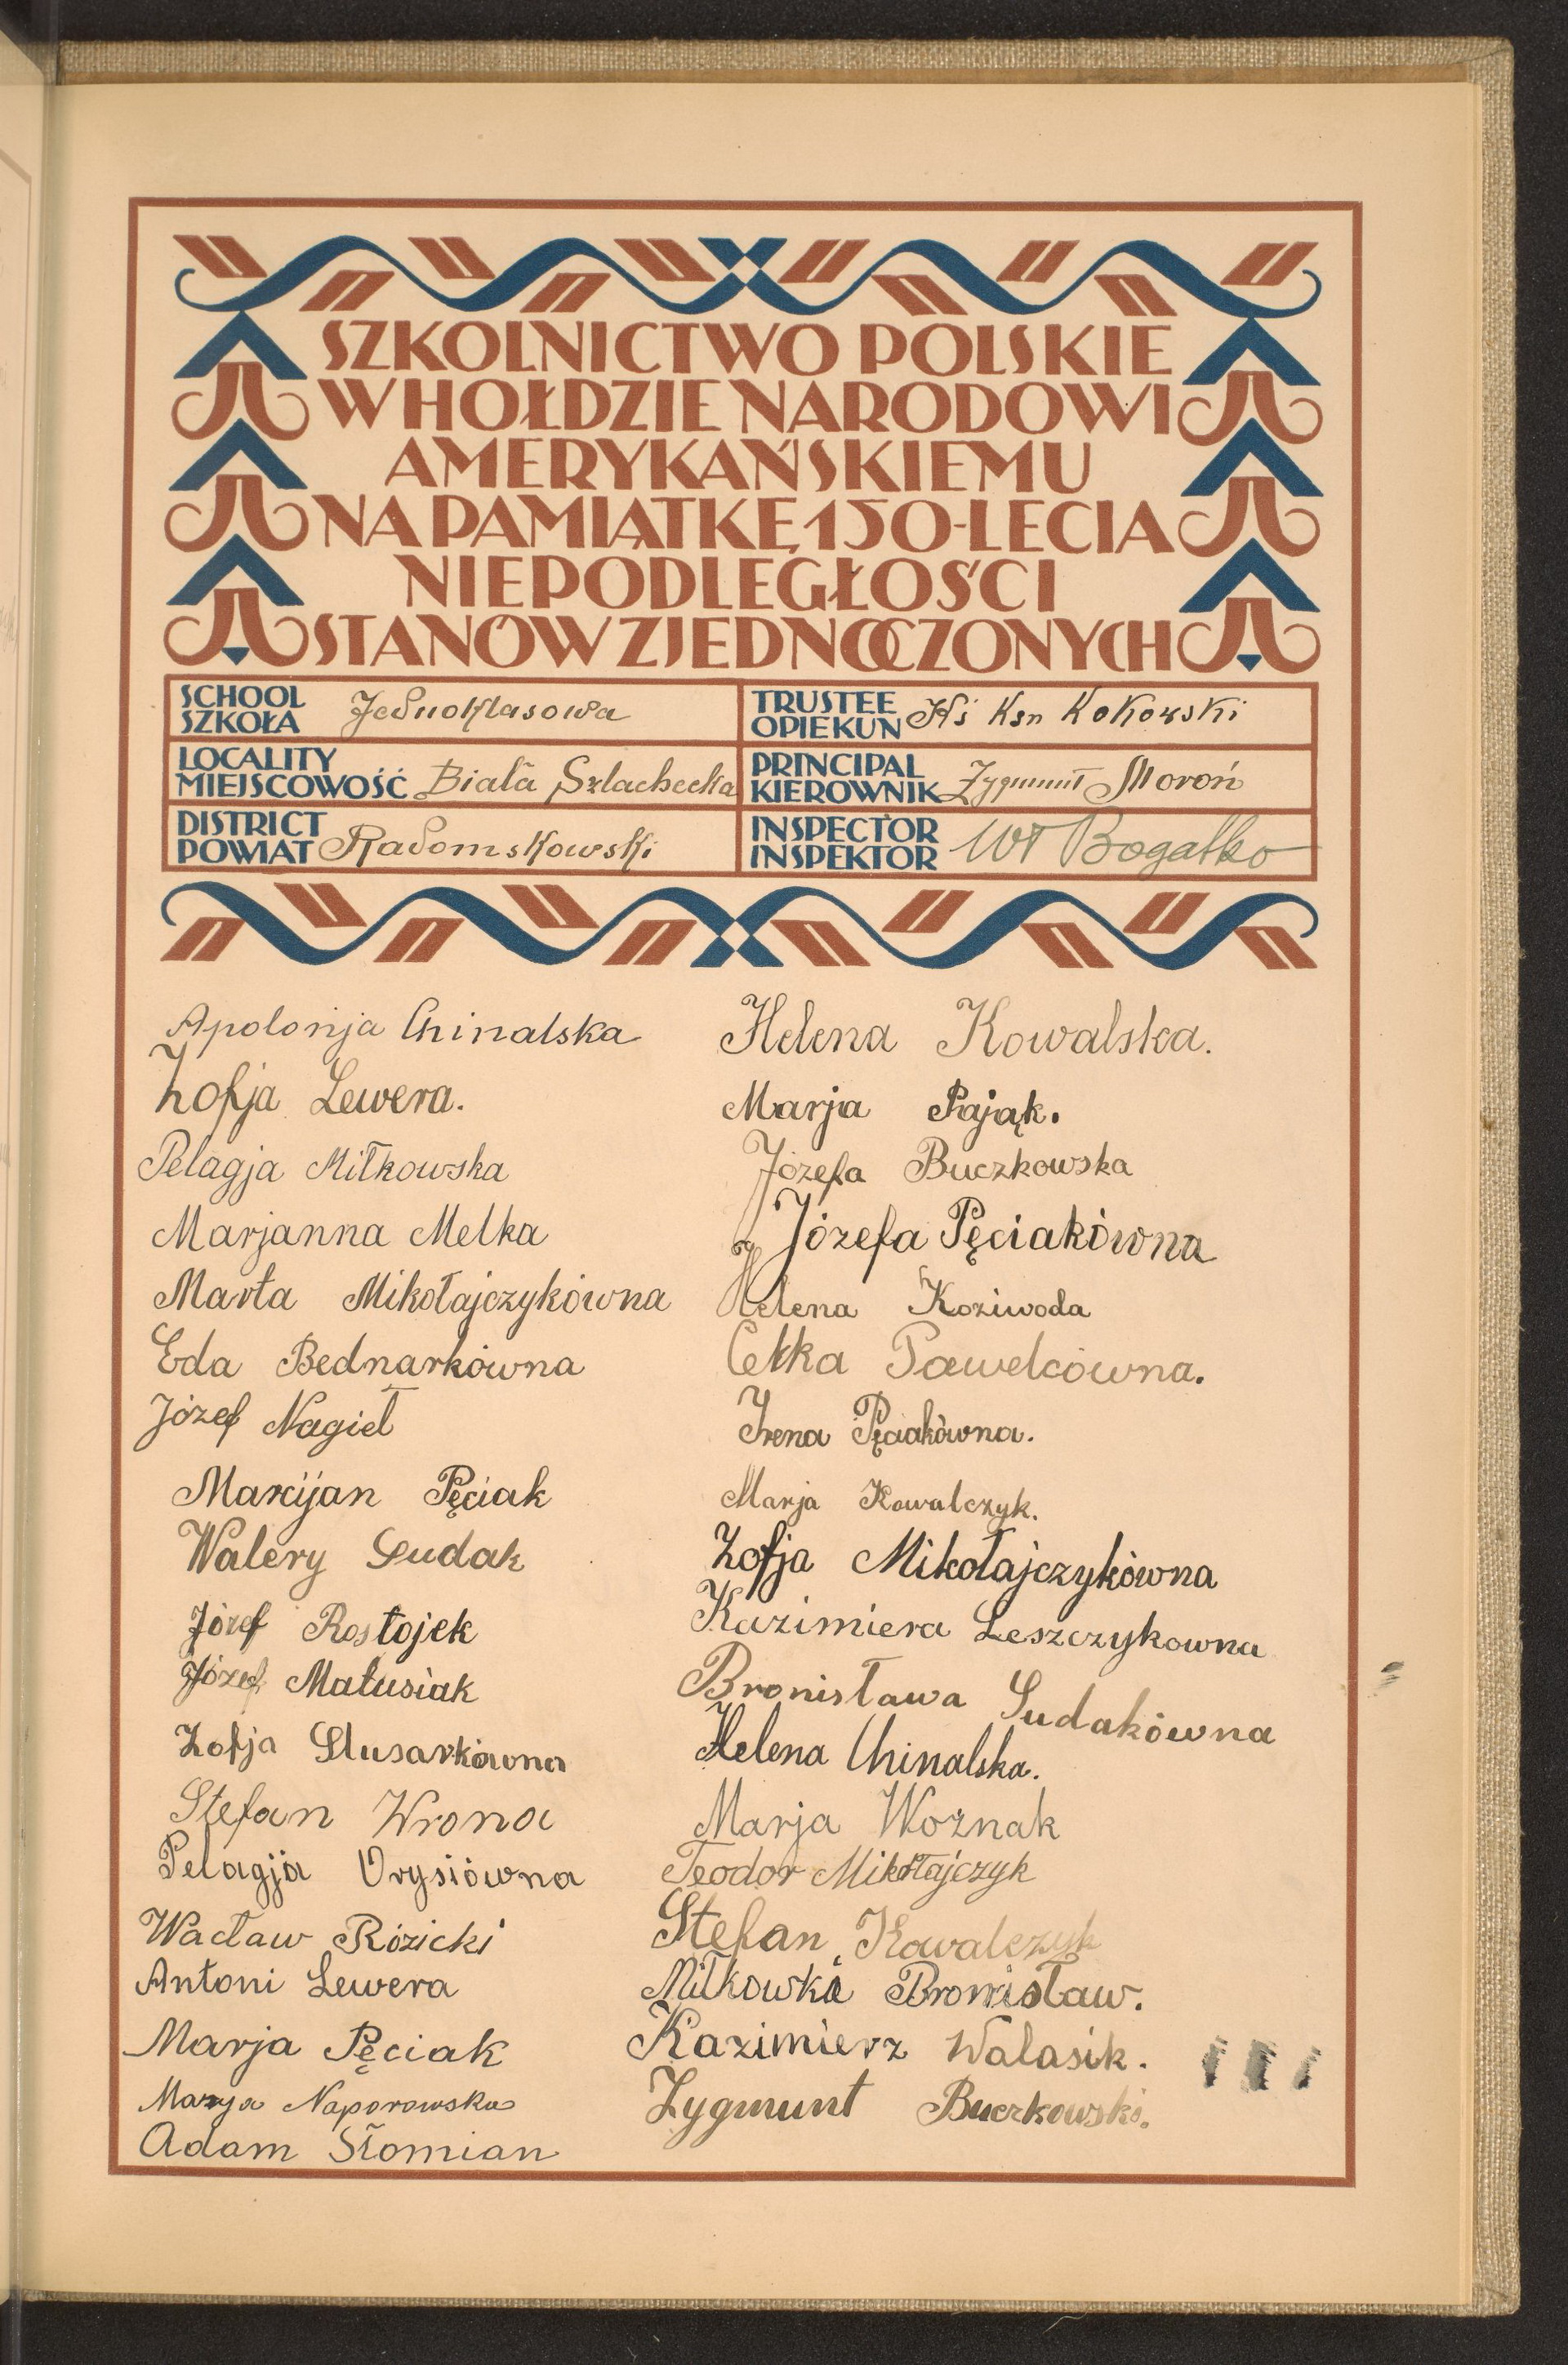 SZKOLNICTWO POLSKIE
W HOŁDZIE NARODOWI
AMERYKAŃSKIEMU
NA PAMIĄTKĘ 150-LECIA
NIEPODLEGŁOŚCI
STANÓW ZJEDNOCZONYCH
SCHOOL
SZKOŁA Jednoklasowa
TRUSTEE
OPIEKUN Kś Ksn Kokowski
LOCALITY
MIEJSCOWOŚĆ Biała Szlachecka
PRINCIPAL
KIEROWNIK Zygmunt Moroń
DISTRICT
POWIAT Radomskowski
INSPECTOR
INSPEKTOR Wł Bogatko
Apolonja Chinalska
Zofja Lewera.
Pelagja Miłkowska
Marjanna Melka
Marta Mikołajczykówna
Eda Bednarkówna
Józef Nagieł
Marcijan Pęciak
Walery Sudak
Józef Rostojek
Józef Matusiak
Zofja Slusarkówna
Stefan Wrona
Pelagja Orysiówna
Wacław Rózicki
Antoni Lewera
Marja Pęciak
Marya Naporowska
Adam Słomian
Helena Kowalska.
Marja Pająk.
Józefa Buczkowska
Józefa Pęciakówna
Helena Koziwoda
Celka Pawelcówna.
Irena Pęciakówna.
Marja Kowalczyk.
Zofja Mikołajczykówna
Kazimiera Leszczykowna
Bronisława Sudakówna
Helena Chinalska.
Marja Woznak
Teodor Mikołajczyk
Stefan Kowalczyk
Miłkowki Bronisław.
Kazimierz Walasik.
Zygmunt Buczkowski.